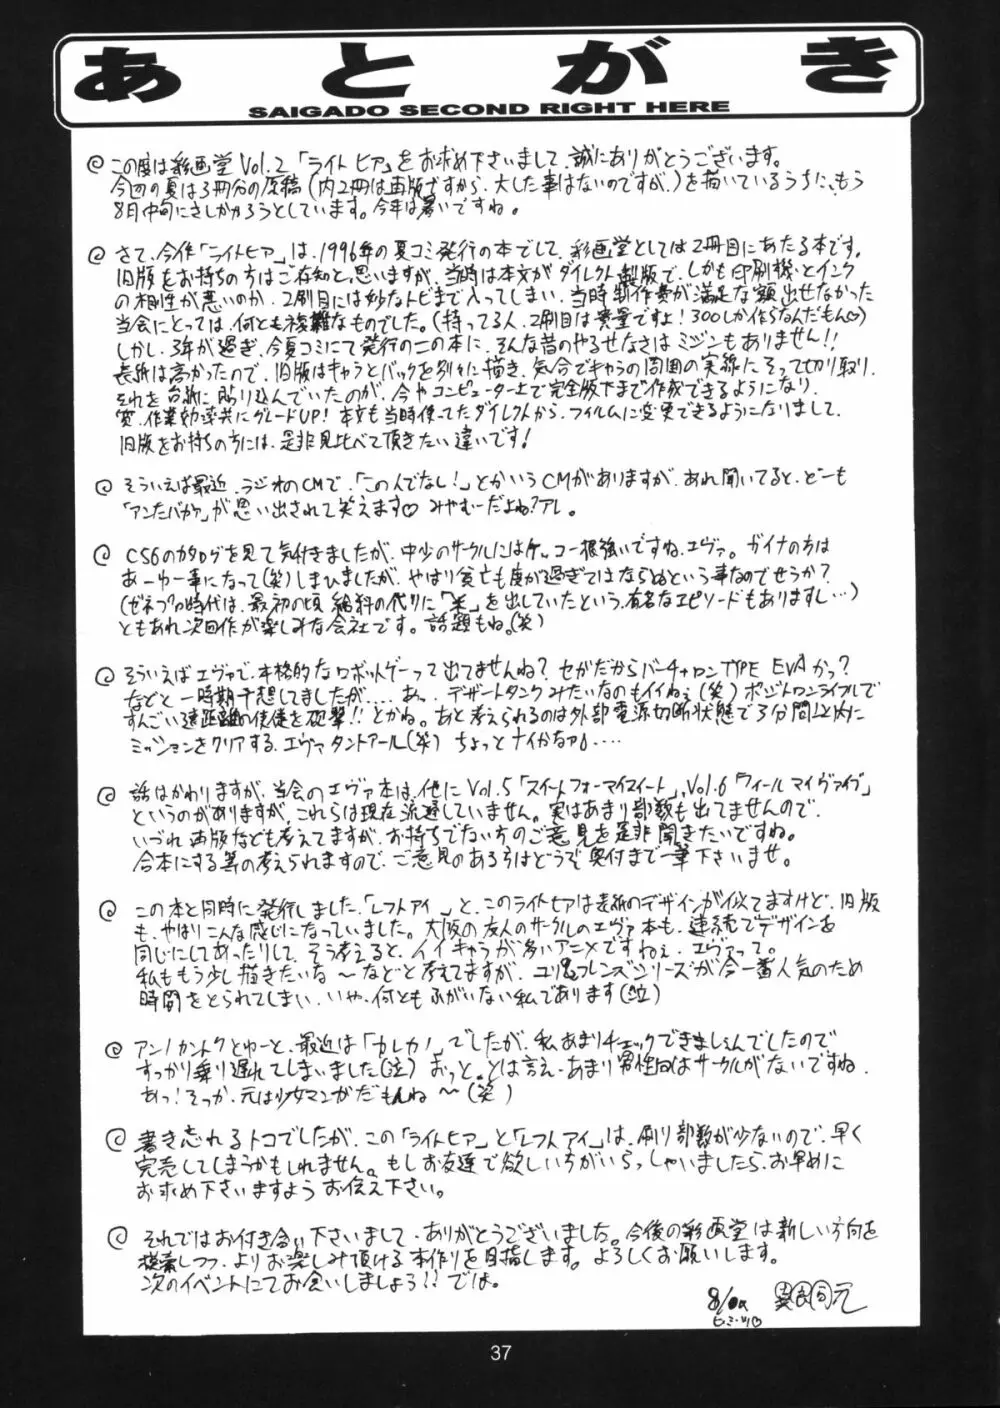 あとがき
SAIGADO SECOND RIGHT HERE
この度は彩画堂 Vol.2「ライト ヒア」をお求め下さいまして、誠にありがとうございます。
今回の夏は3冊分の原稿(内2冊は再版ですから、大した事はないのですが、)を描いているうちに、もう
8月中旬にさしかかろうとしています。今年は暑いですね。
さて、今作「ライトヒア」は、1996年の夏コミ発行の本でして、彩画堂としては2冊目にあたる本です。
旧版をお持ちの方はご存知と思いますが、当時は本文がダイレクト製版で、しかも印刷機とインク
の相性が悪いのか、2刷目には妙なトビまで入ってしまい、当時制作費が満足な額出せなかった
当会にとっては、何とも複雑なものでした。(持ってる人、2刷目は貴重ですよ!300しか作らなんだもん♡)
しかし、3年が過ぎ、今夏コミにて発行のこの本に、そんな昔のやるせなさはミジンもありません!!
表紙は高かったので、旧版はキャラとバックを別々に描き、気合でキャラの周囲の実線にそって切り取り、
それを台紙に貼り込んでいたのが、今やコンピューター上で完全版下まで作成できるようになり
質、作業効率共にグレードUP!本文も当時使ってたダイレクトから、フィルムに変更できるようになりまして、
旧版をお持ちの方には、是非見比べて頂きたい違いです!
そういえば最近、ラジオのCMで、「この人でなし!」とかいうCMがありますが、あれ聞いてると、どーも
「アンタバカァ」が思い出されて笑えます♡ みやむーだよね?アレ。
CS6のカタログを見て気付きましたが、中少のサークルにはケッコー根強いですね、エヴァ。ガイナの方は
あーゆー事になって(笑)しまひましたが、やはり貧乏も度が過ぎてはならぬという事なのでせうか?
(ゼネプロ時代は、最初の頃、給料の代りに「米」を出していたという、有名なエピソードもありますし…)
ともあれ次回作が楽しみな会社です。話題もね。(笑)
そういえばエヴァで、本格的なロボットゲーって出てませんね?セガだからバーチャロン TYPE EVAかっ?
などと一時期予想してましたが.....あっ、デザートタンクみたいなのもイイねぇ(笑)ポジトロンライフルで
すんごい遠距離の使徒を砲撃!!とかね。あと考えられるのは外部電源切断状態で3分間以内に
ミッションをクリアする、エヴァタントアール(笑) ちょっとナイかなァ.....
話はかわりますが、当会のエヴァ本は、他に Vol.5「スイートフォーマイスイート」、Vol.6「フィール マイ ヴァイヴ」
というのがありますが、これらは現在流通していません。実はあまり部数も出てませんので、
いづれ再版なども考えてますが、お持ちでない方のご意見を是非聞きたいですね。
合本にする等の考えられますので、ご意見のある方はどうぞ奥付まで一筆下さいませ。
この本と同時に発行しました、「レフトアイ」と、このライトヒアは表紙のデザインが似てますけど、旧版
も、やはりこんな感じになっていました。大阪の友人のサークルのエヴァ本も、連続でデザインを
同じにしてあったりして、そう考えると、イイキャラが多いアニメですねぇ、エヴァって。
私ももう少し描きたいな〜などと考えてますが、ユリ&フレンズシリーズが今一番人気のため
時間をとられてしまい、いや、何ともふがいない私であります(泣)
アンノカントクとゆーと、最近は「カレカノ」でしたが、私あまりチェックできましぇんでしたので
すっかり乗り遅れてしまいました(泣) おっと。とは言え、あまり男性向はサークルがないですね
あっ!そっか、元は少女マンガだもんね〜(笑)
書き忘れるトコでしたが、この「ライトヒア」と「レフトアイ」は、刷り部数が少ないので、早く
完売してしまうかもしれません。もしお友達で欲しい方がいらっしゃいましたら、お早めに
お求め下さいますようお伝え下さい。
それではお付き合い下さいまして、ありがとうございました。今後の彩画堂は新しい方向を
模索しつつ、よりお楽しみ頂ける本作りを目指します。よろしくお願いします。
次のイベントにてお会いしましょう!!では。
37